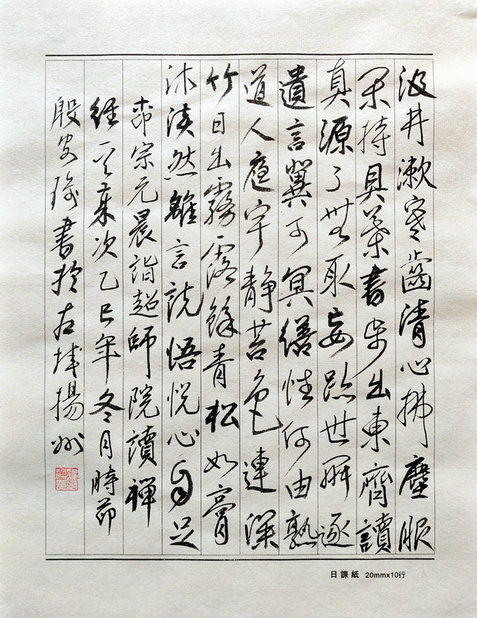 汲井漱寒齒清心拂塵服
閒持貝葉書步出東齋讀
真源了無取妄跡世所逐
遺言冀可冥繕性何由熟
道人庭宇靜苔色連深
竹日出霧露餘青松如膏
沐淡然離言說悟悅心自足
柳宗元晨詣超師院讀禪
經一首歲次乙巳年冬月時節
殷書於古揚州
日課紙 20mmx10行